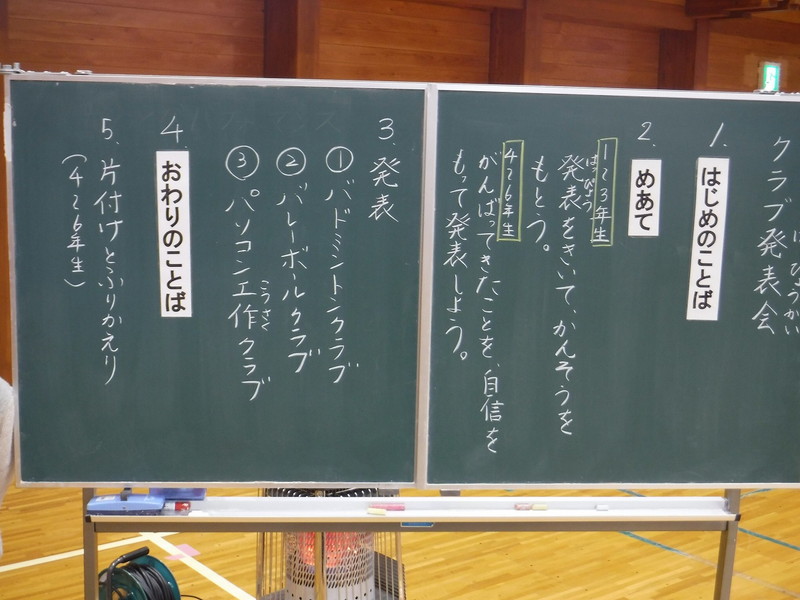 クラブ発表会
はっぴょうかい
1. はじめのことば
2. めあて
1~3年生
発表をきいて、かんそうを
はっぴょう
もとう。
4~6年生
がんばってきたことを、自信を
もって発表しよう。
3. 発表
① バドミントンクラブ
② バレーボールクラブ
③ パソコン工作クラブ
こうさく
4. おわりのことば
5. 片付けとふりかえり
(4~6年生)